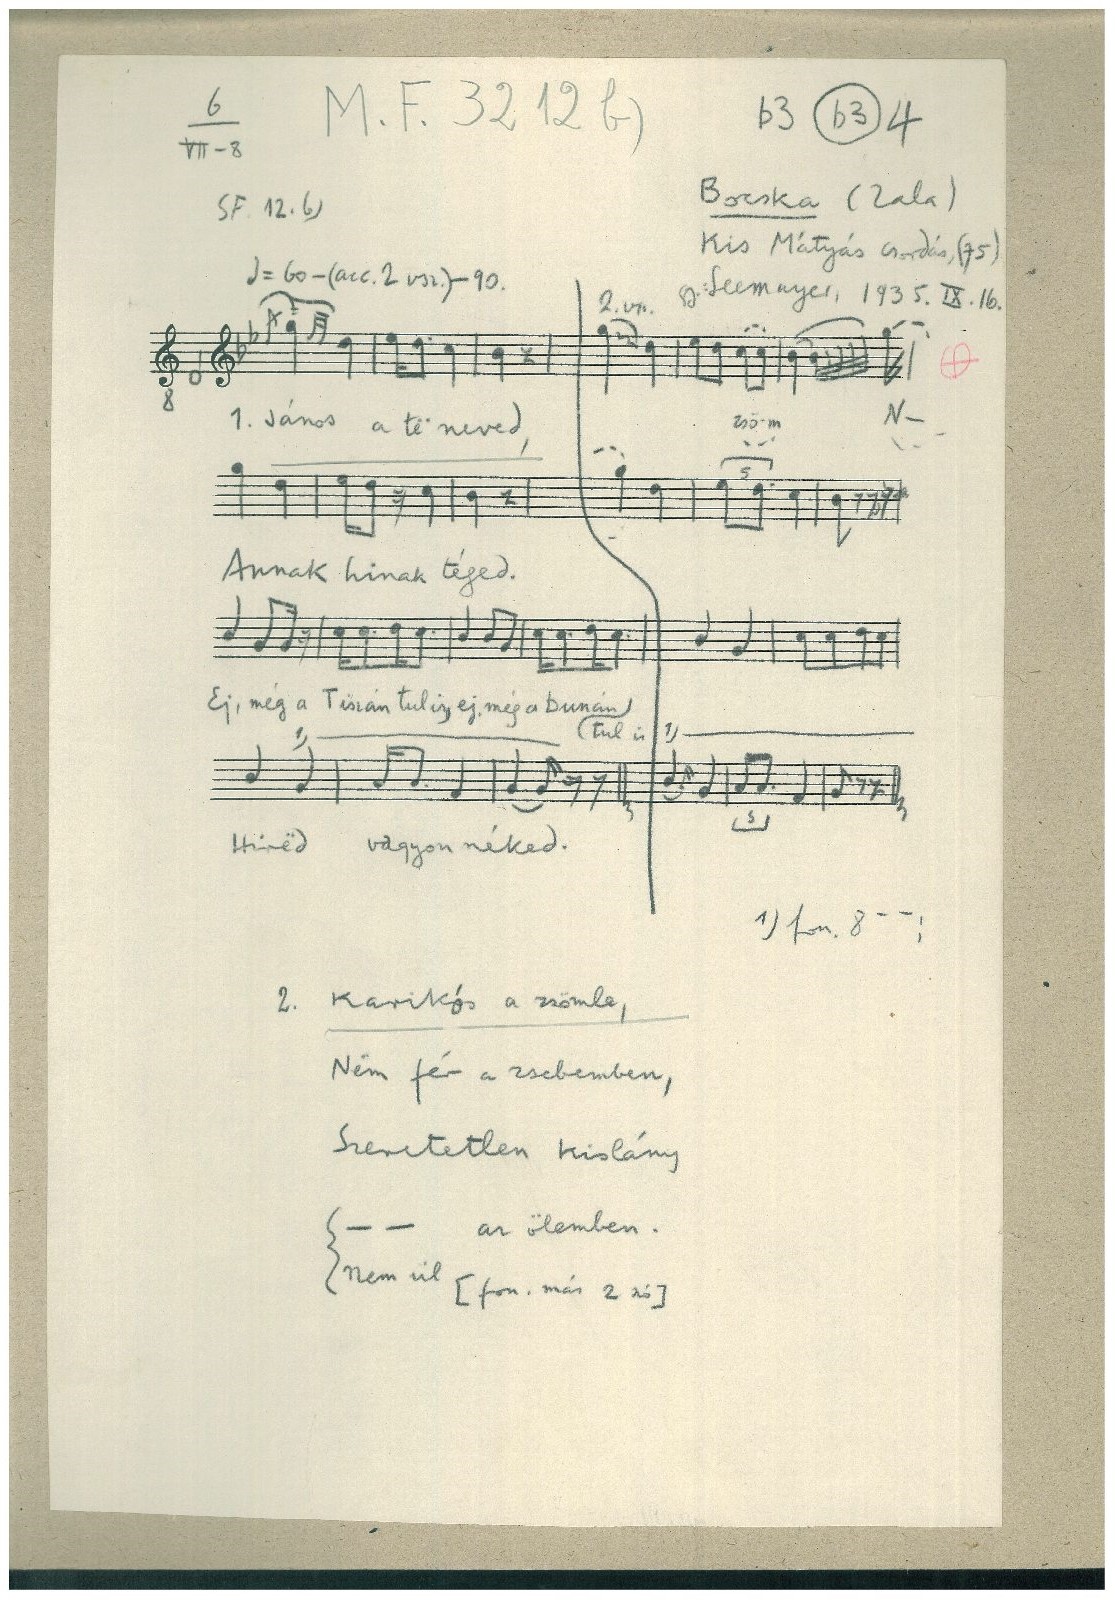 6
VII-8
M.F. 3212 b)
b3 (b3) 4
SF. 12.b)
Bocska (Zala)
Kis Mátyás csordás, (75)
gy: Seemayer, 1935. IX. 16.
♩= 60-(acc. 2 vsz.)-90.
2. vsz.
8
1. János a të neved,
zsö-m
N-
5
Annak hinak téged.
Ej, még a Tiszán tul is, ej, még a Dunán
(tul is
1)
1)
Hirëd vagyon néked.
5
1) fon. 8 - - ;
2. Karikós a zsömle,
Nëm fér a zsebemben,
Szeretetlen kislány
{ — — az ölemben.
nem ül [fon. más 2 szó]